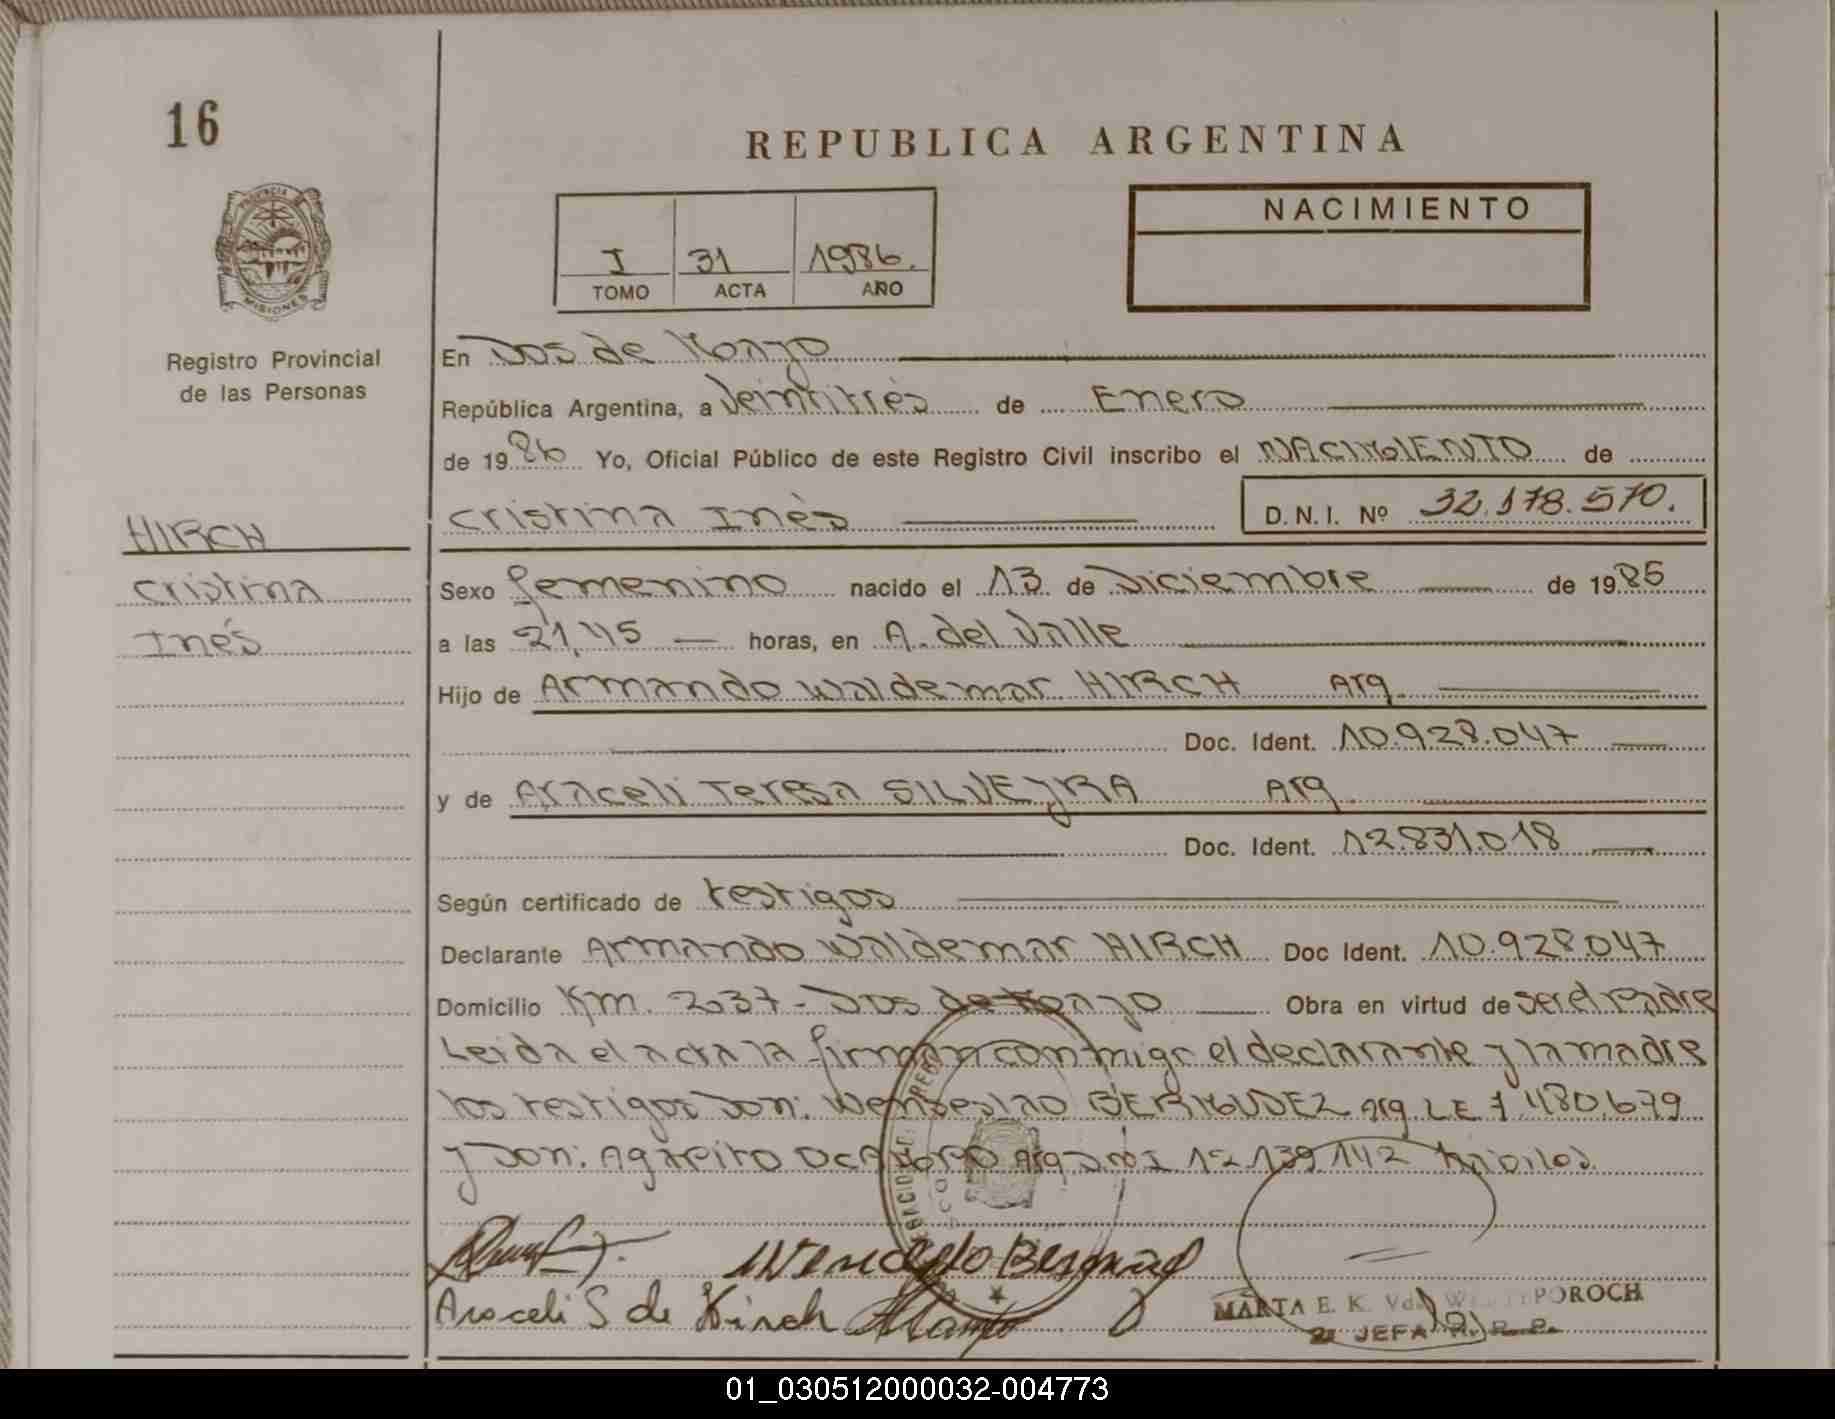 16
REPUBLICA ARGENTINA
PROVINCIA
MISIONES
Registro Provincial
de las Personas
I 31 1986.
TOMO ACTA AÑO
NACIMIENTO
En Dos de Mayo
República Argentina, a Veintitrés de Enero
de 1986 Yo, Oficial Público de este Registro Civil inscribo el NACIMIENTO de
Cristina Inès D.N.I. Nº 32.178.570.
HIRCH
Cristina
Inés
Sexo femenino nacido el 13 de Diciembre de 1985
a las 21,45 horas, en A. del Valle
Hijo de Armando Waldemar HIRCH Arg.
Doc. Ident. 10.928.047
y de Araceli Teresa SILVEYRA Arg
Doc. Ident. 12.831.018
Según certificado de testigos
Declarante Armando Waldemar HIRCH Doc Ident. 10.928.047
Domicilio Km. 237 - Dos de Mayo Obra en virtud de ser el padre
Leida el acta la firman conmigo el declarante y la madre
los testigos Don: Wenseslao BERMUDEZ Arg. L E 7.480.679
y Don: Agapito OCAMPO Arg DNI 12.139.142
Araceli S de Hirch
MARTA E. K. Vda. POROCH
JEFA R. P. P.
01_030512000032-004773